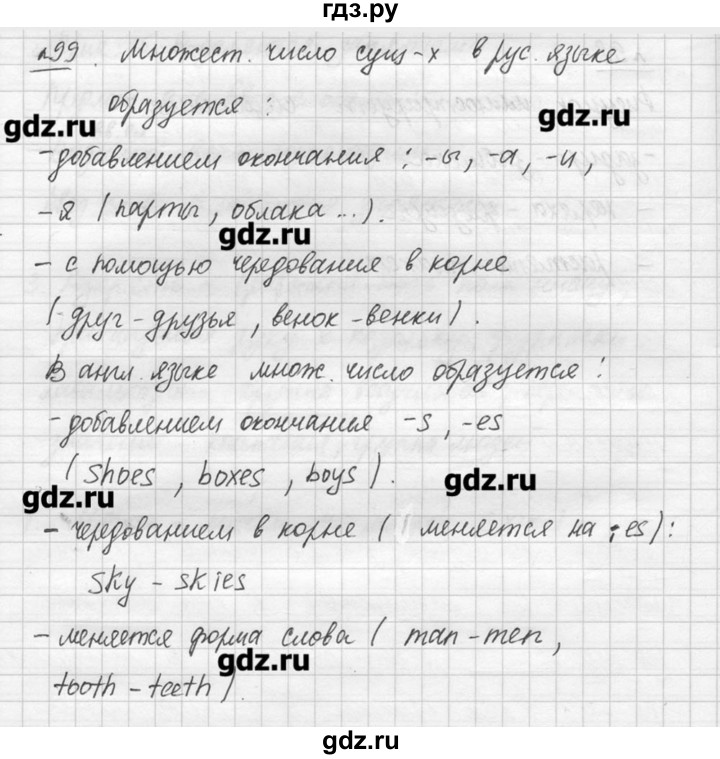 гдз.ру
№99. Множест. число сущ-х в рус. языке
образуется:
gdz.ru
gdz.ru
-добавлением окончания: -ы, -а, -и,
-я (парты, облака...).
gdz.ru
- с помощью чередования в корне
(друг-друзья, венок-венки).
В англ. языке множ. число образуется:
-добавлением окончания -s, -es
(shoes, boxes, boys).
gdz.ru
gdz.ru
- чередованием в корне ( меняется на -es):
sky - skies
- меняется форма слова ( man-men,
gdz.ru
tooth-teeth)
gdz.ru